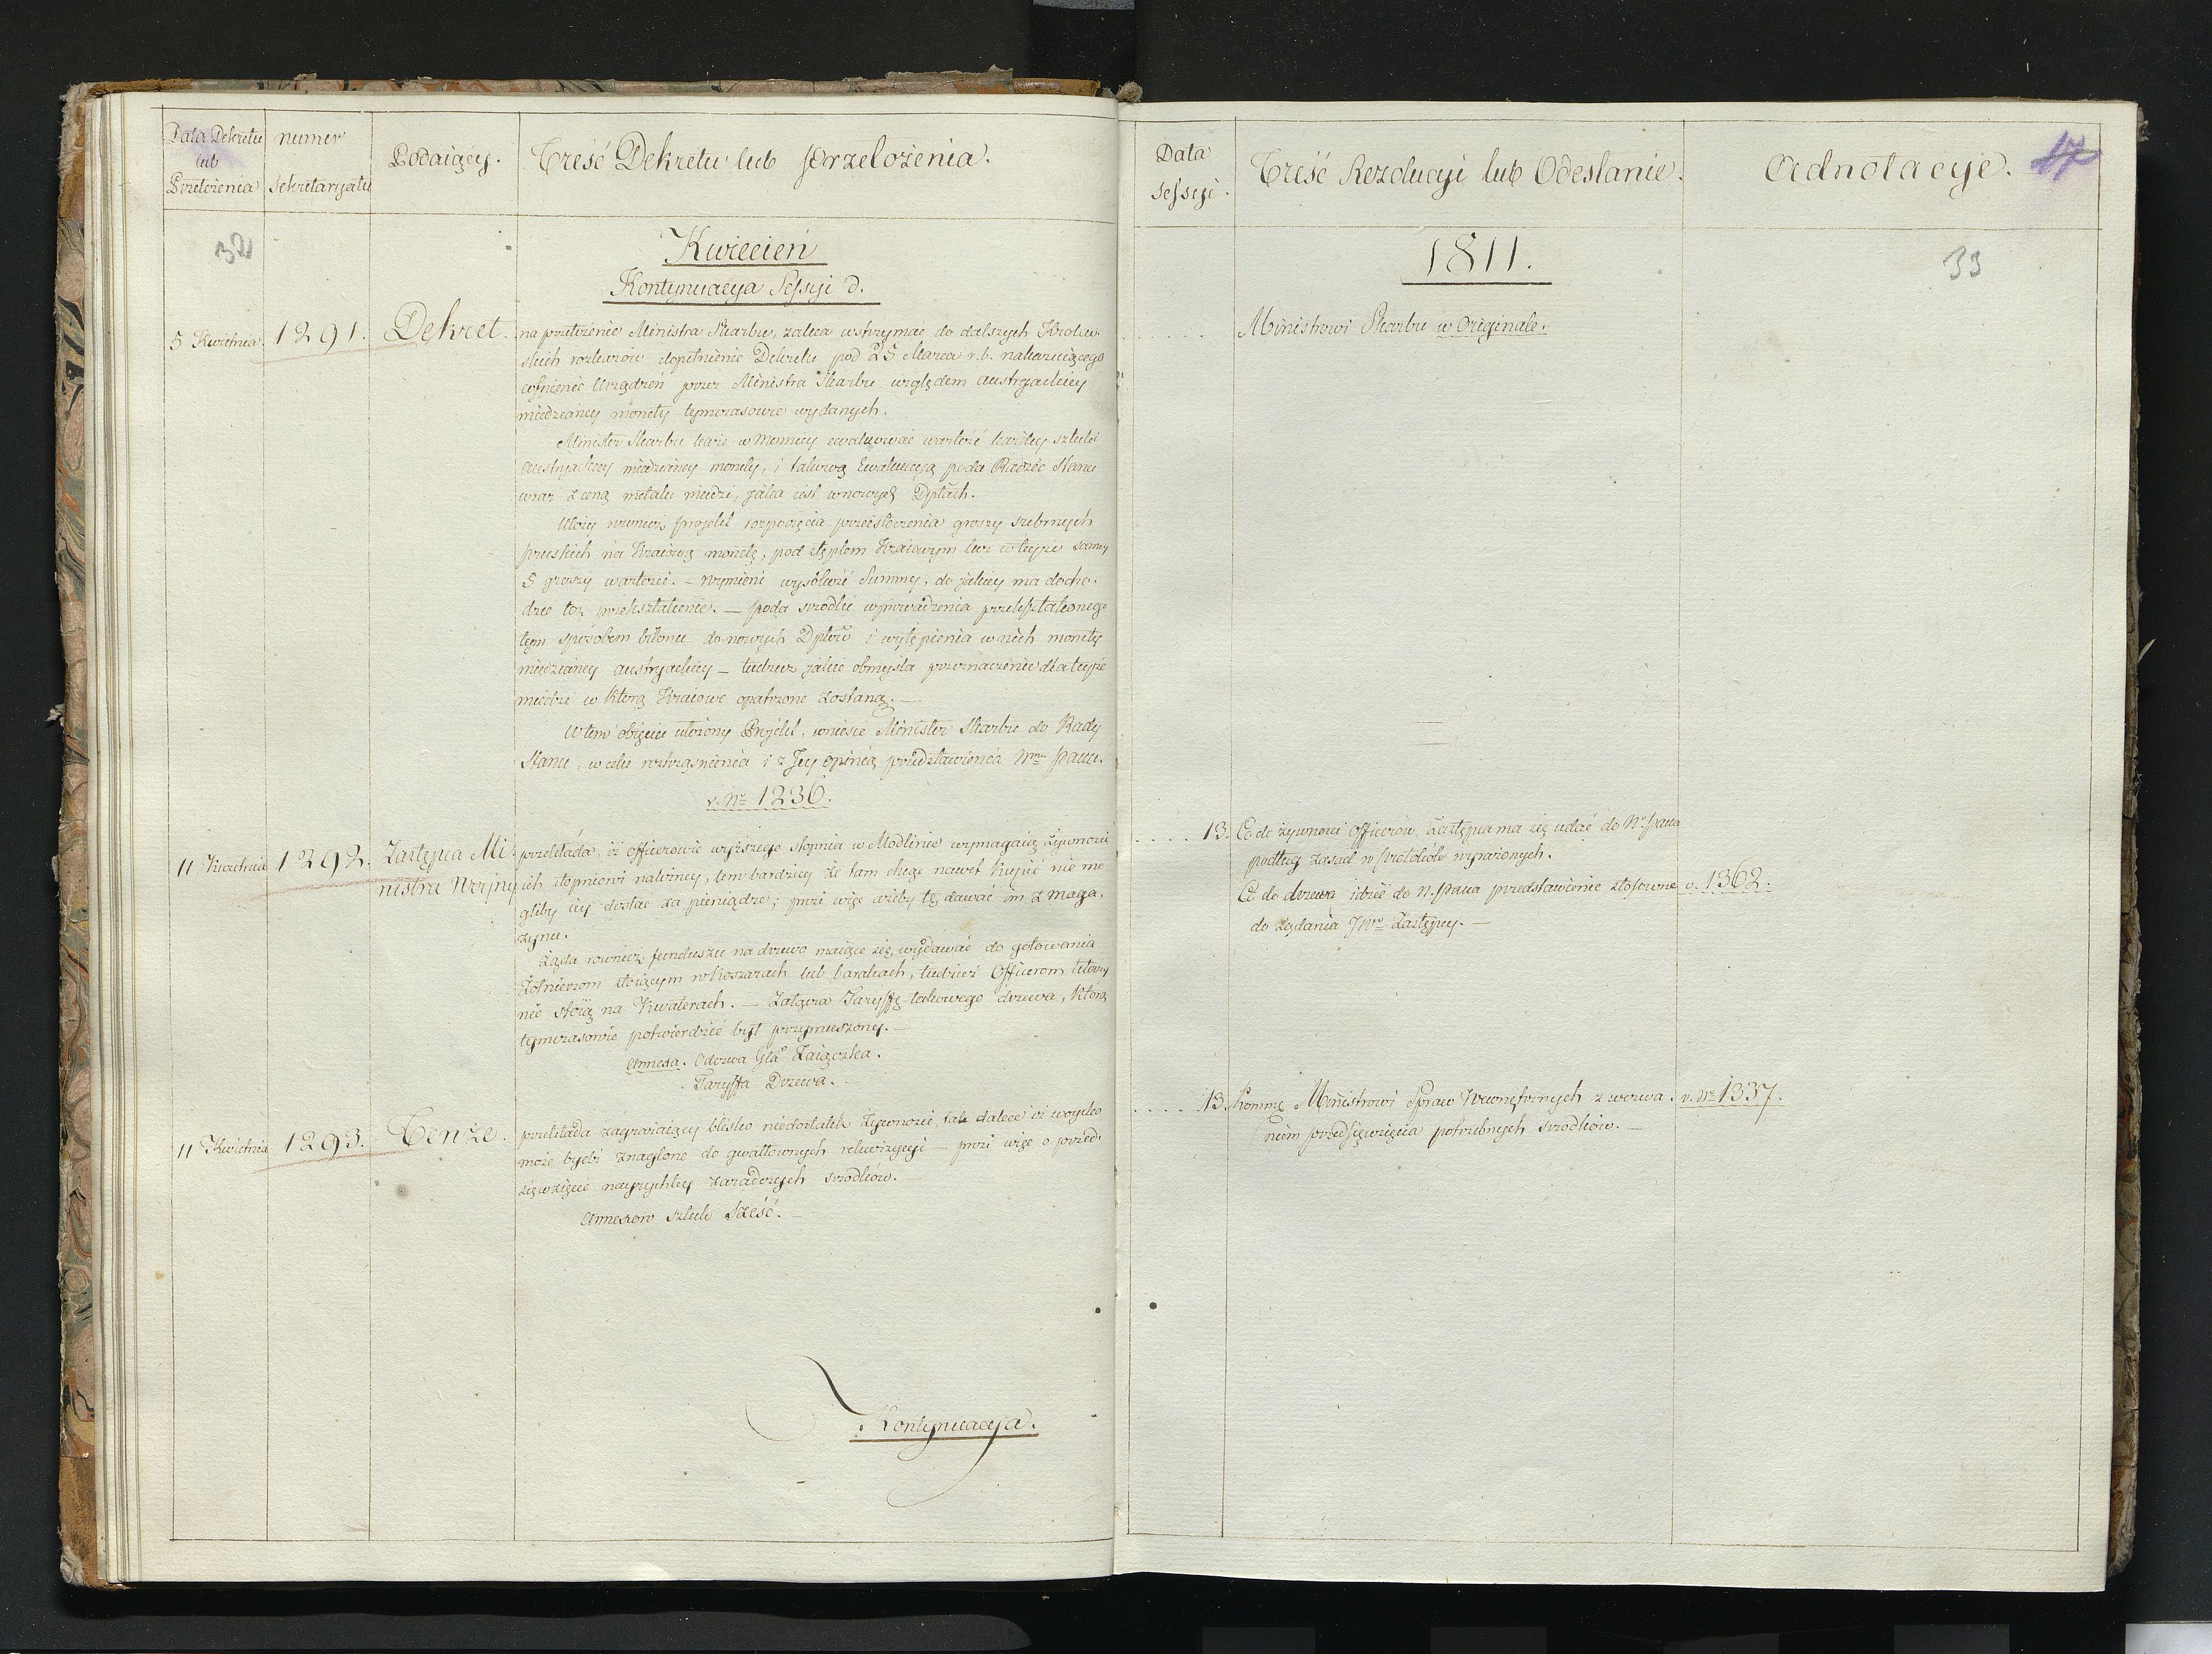 Data Dekretu
lub
Przełożenia
numer
Sekretaryatu
Podaiący.
Treść Dekretu lub Przełożenia.
32
Kwiecień
Kontynuacya Sessyi d.
5 Kwietnia
1291.
Dekret.
na przełożenie Ministra Skarbu, zaleca wstrzymać do dalszych Królew-
skich rozkazów dopełnienie Dekretu pod 25 Marca r.b. nakazuiącego
cofnienie Urządzeń przez Ministra Skarbu względem austryackiey
miedzianey monety tymczasowie wydanych.
Minister Skarbu każe w Mennicy ewaluować wartość każdey sztuki
Austryackiey miedzianey monety, i takową Ewaluacyą poda Radzie Stanu
wraz z ceną metalu miedzi, jaka iest w nowych Dptach.
Ułoży również projekt rozpoczęcia przeistoczenia groszy srebrnych
pruskich na Kraiową monetę, pod stęplem Kraiowym lecz w teyże samey
5 groszy wartości. – wymieni wysokość Summy, do jakiey ma docho-
dzić toż przekształcenie. – poda srodki wprowadzenia przekształconego
tym sposobem bilonu do nowych Dptów i wytępienia w nich monety
miedzianey austryackiey – tudzież jakie obmyśla przeznaczenie dla teyże
miedzi w którą Kraiowe opatrzone zostaną. –
W tem obięcie ułożony Projekt, wniesie Minister Skarbu do Rady
Stanu, w celu roztrząśnienia i z Jey opinią przedstawienia Nmu Panu.
v. No 1236.
11 Kwietnia
1292.
Zastępca Mi-
nistra Woyny
przekłada, iż officerowie wyższego stopnia w Modlinie wymagaią żywności
ich stopniowi należney, tem bardziey że tam chcąc nawet kupić nie mo-
gliby iey dostać za pieniądze; prosi więc ażeby tę dawać im z maga-
zynu.
Żąda również funduszu na drzewo maiące się wydawać do gotowania
Żołnierzom stoiącym w Koszarach lub barakach, tudzież Officerom którzy
nie stoią na Kwaterach. – Załącza Taryffę takowego drzewa, którą
tymczasowie potwierdzić był przymuszony. –
Annexa. Odezwa Gła Zaiączka.
Taryffa Drzewa. –
11 Kwietnia
1293.
Tenże.
przekłada zagrażaiący blisko niedostatek Żywności, tak dalece iż woysko
może bydź znaglone do gwałtownych rekwizycyi – prosi więc o przed-
sięwzięcie nayrychley zaradczych srodków. –
Annexow sztuk sześć. –
Kontynuacya.
Data
Sessyi.
Treść Rezolucyi lub Odesłanie.
Adnotacye.
17
1811.
33
Ministrowi Skarbu w Originale.
13.
Co do żywności Officerów, Zastępca ma się udać do No Pana
podług zasad w Protokóle wyrażonych.
Co do drzewa idzie do N. Pana przedstawienie stosowne
v. 1362.
do żądania JWo Zastępcy. –
13.
Kommę Ministrowi Spraw Wewnętrznych z wezwa-
v. No 1337.
niem przedsięwzięcia potrzebnych srodków. –